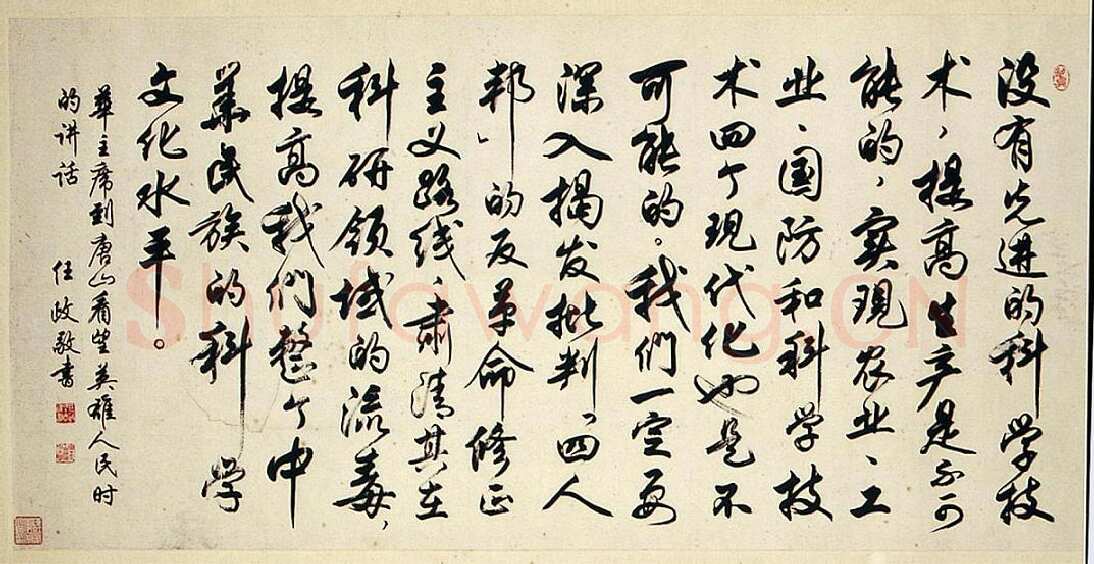 没有先进的科学技
术，提高生产是不可
能的，实现农业、工
业、国防和科学技
术四个现代化也是不
可能的。我们一定要
深入揭发批判「四人
邦」的反革命修正
主义路线，肃清其在
科研领域的流毒，
提高我们整个中
华民族的科学
文化水平。
华主席到唐山看望英雄人民时
的讲话 任政敬书
shufawang.CN